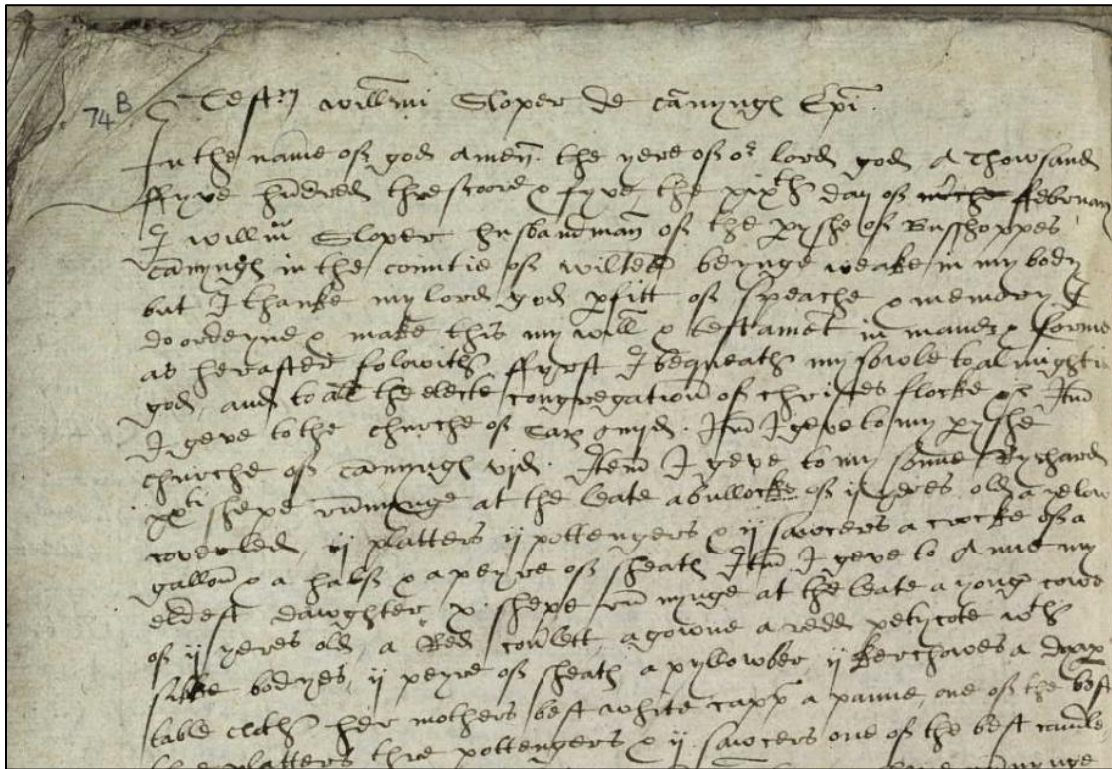 74B
Testm willmi Sloper de Cānyngs Epi.
In the name off god Amen. the yere off or lord god A Thowsand
ffyve hūdred threscore & fyve, the xixth day off februari
I willm Sloper husbandman off the pyshe off Busshoppes
Cānyngs in the countie off wiltes beynge weake in my body
but I thanke my lord god pfitt off speache & memory I
do ordeyne & make this my will & testamēt in maner & forme
as herafter folowith ffyrst I bequeath my sowle to almighti
god, and to all the electe congregation off christes flocke Itm
I geve to the churche off Sar iiijd. Itm I geve to my pyshe
churche off Cannyngs vjd. Item I geve to my sonne Rychard
xxti shepe rūninge at the leate a bullocke off ij yeres old a yelow
coverled, ij platters ij pottengers & ij sawcers a crocke off a
gallon & a halff & a peyre off sheats Itm I geve to Anne my
eldest dawghter x shepe rūnynge at the leate a yonge cowe
off ij yeres old, a Red covlett, a gowne a redd petycote wth
silke bodyes, ij peyre off sheats a pyllowber, ij kerchowes a
table cloth her mothers best white capp a panne, one off the best
platters thre pottengers & ij sawcers one off the best